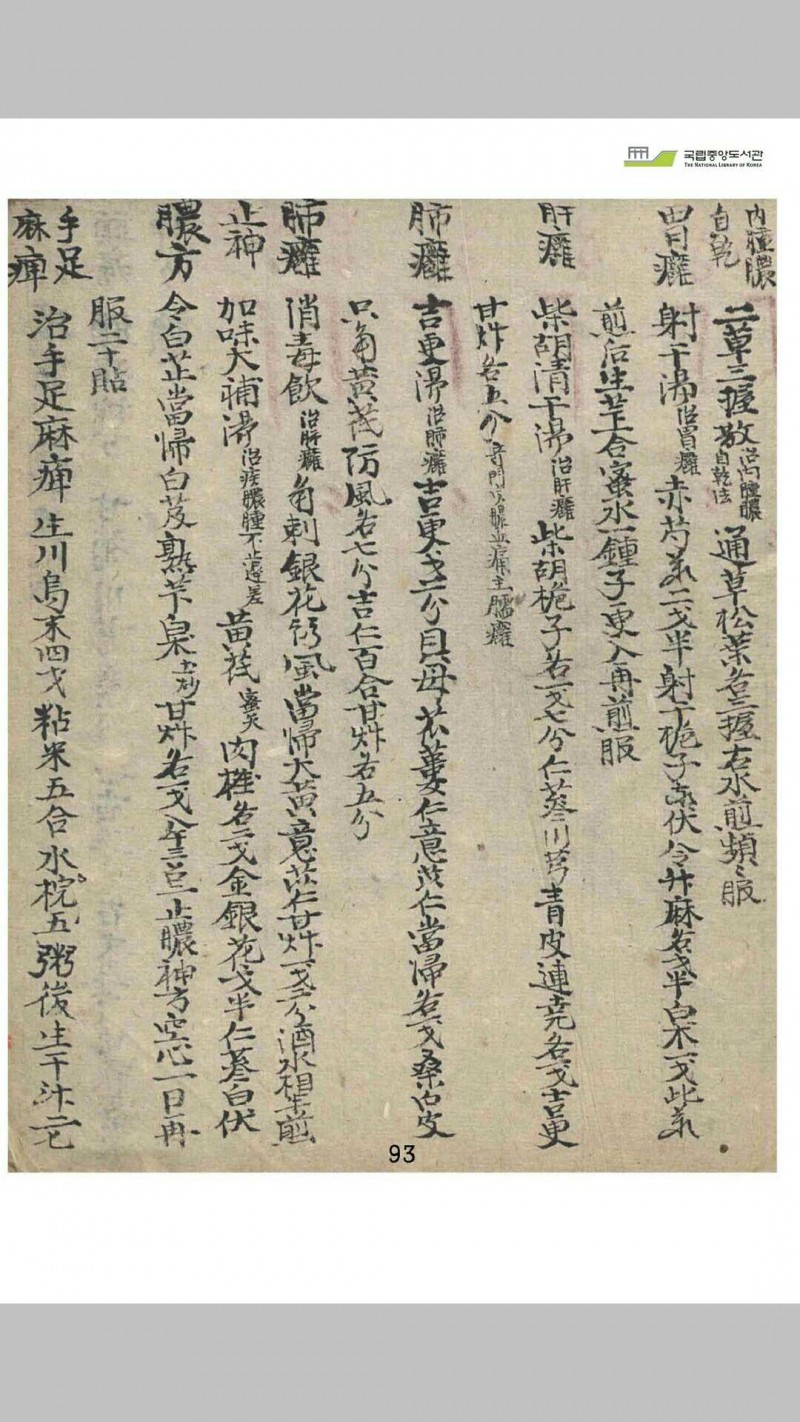 국립중앙도서관
THE NATIONAL LIBRARY OF KOREA
內腫膿
自乾
二草三握散 治內腫膿自乾法 通草松葉各三握右水煎頻〻服
胃癰
射干湯 治胃癰 赤芍藥二戈半射干梔子赤伏令升麻各戈半白朮一戈此藥
煎后生芐合蜜水一鍾子更入再煎服
肝癰
柴胡清干湯 治肝癰 柴胡梔子各一戈七分仁蔘川芎青皮連売各一戈吉更
甘炸各五分
肺癰
吉更湯 治肺癰 吉更戈二分貝母 仁意苡仁當帰各一戈桑白皮
只角黃芪防風各七分吉仁百合甘炸各五分
肺癰
消毒飲 治肺癰 角刺銀花防風當帰大黃意苡仁甘炸一戈二分酒水相半煎
止神
膿方
加味大補湯 黃芪 蜜灸 肉桂各二戈金銀花戈半仁蔘白伏
令白芷當帰白芨熟芐 土炒 甘炸各一戈 止膿神方空心一日再
服二十貼
手足
麻痺
治手足麻痺 生川烏末四戈粘米五合水椀五粥後生干汁二
93